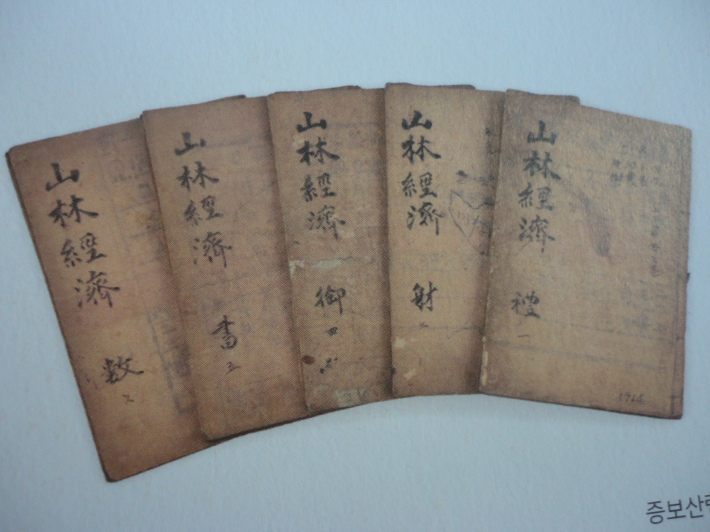 山林經濟 禮 一
山林經濟 射
山林經濟 御
山林經濟 書
山林經濟 數
증보산